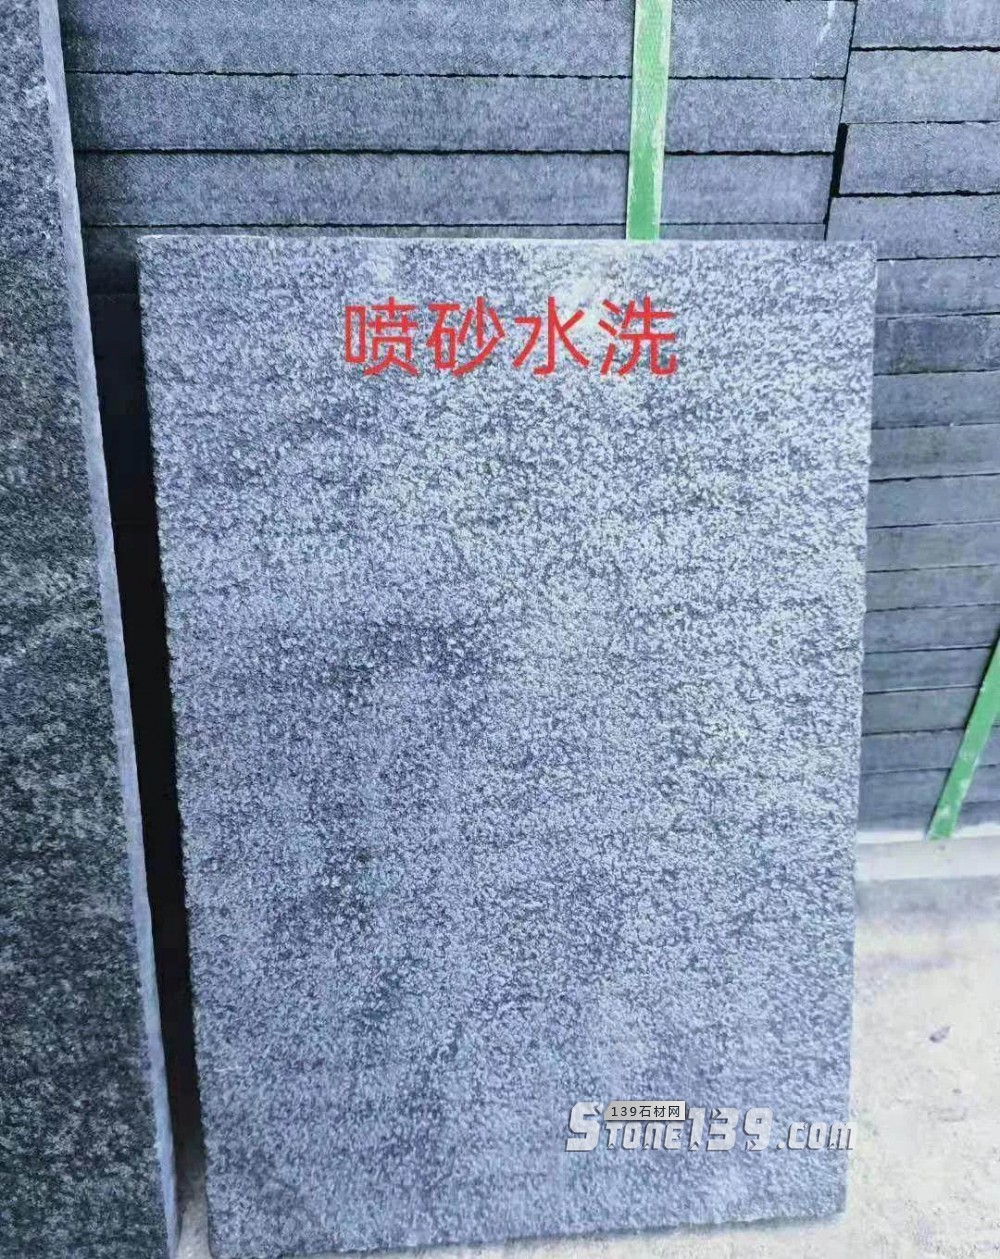 喷砂水洗
139石材网
STONE139.COM